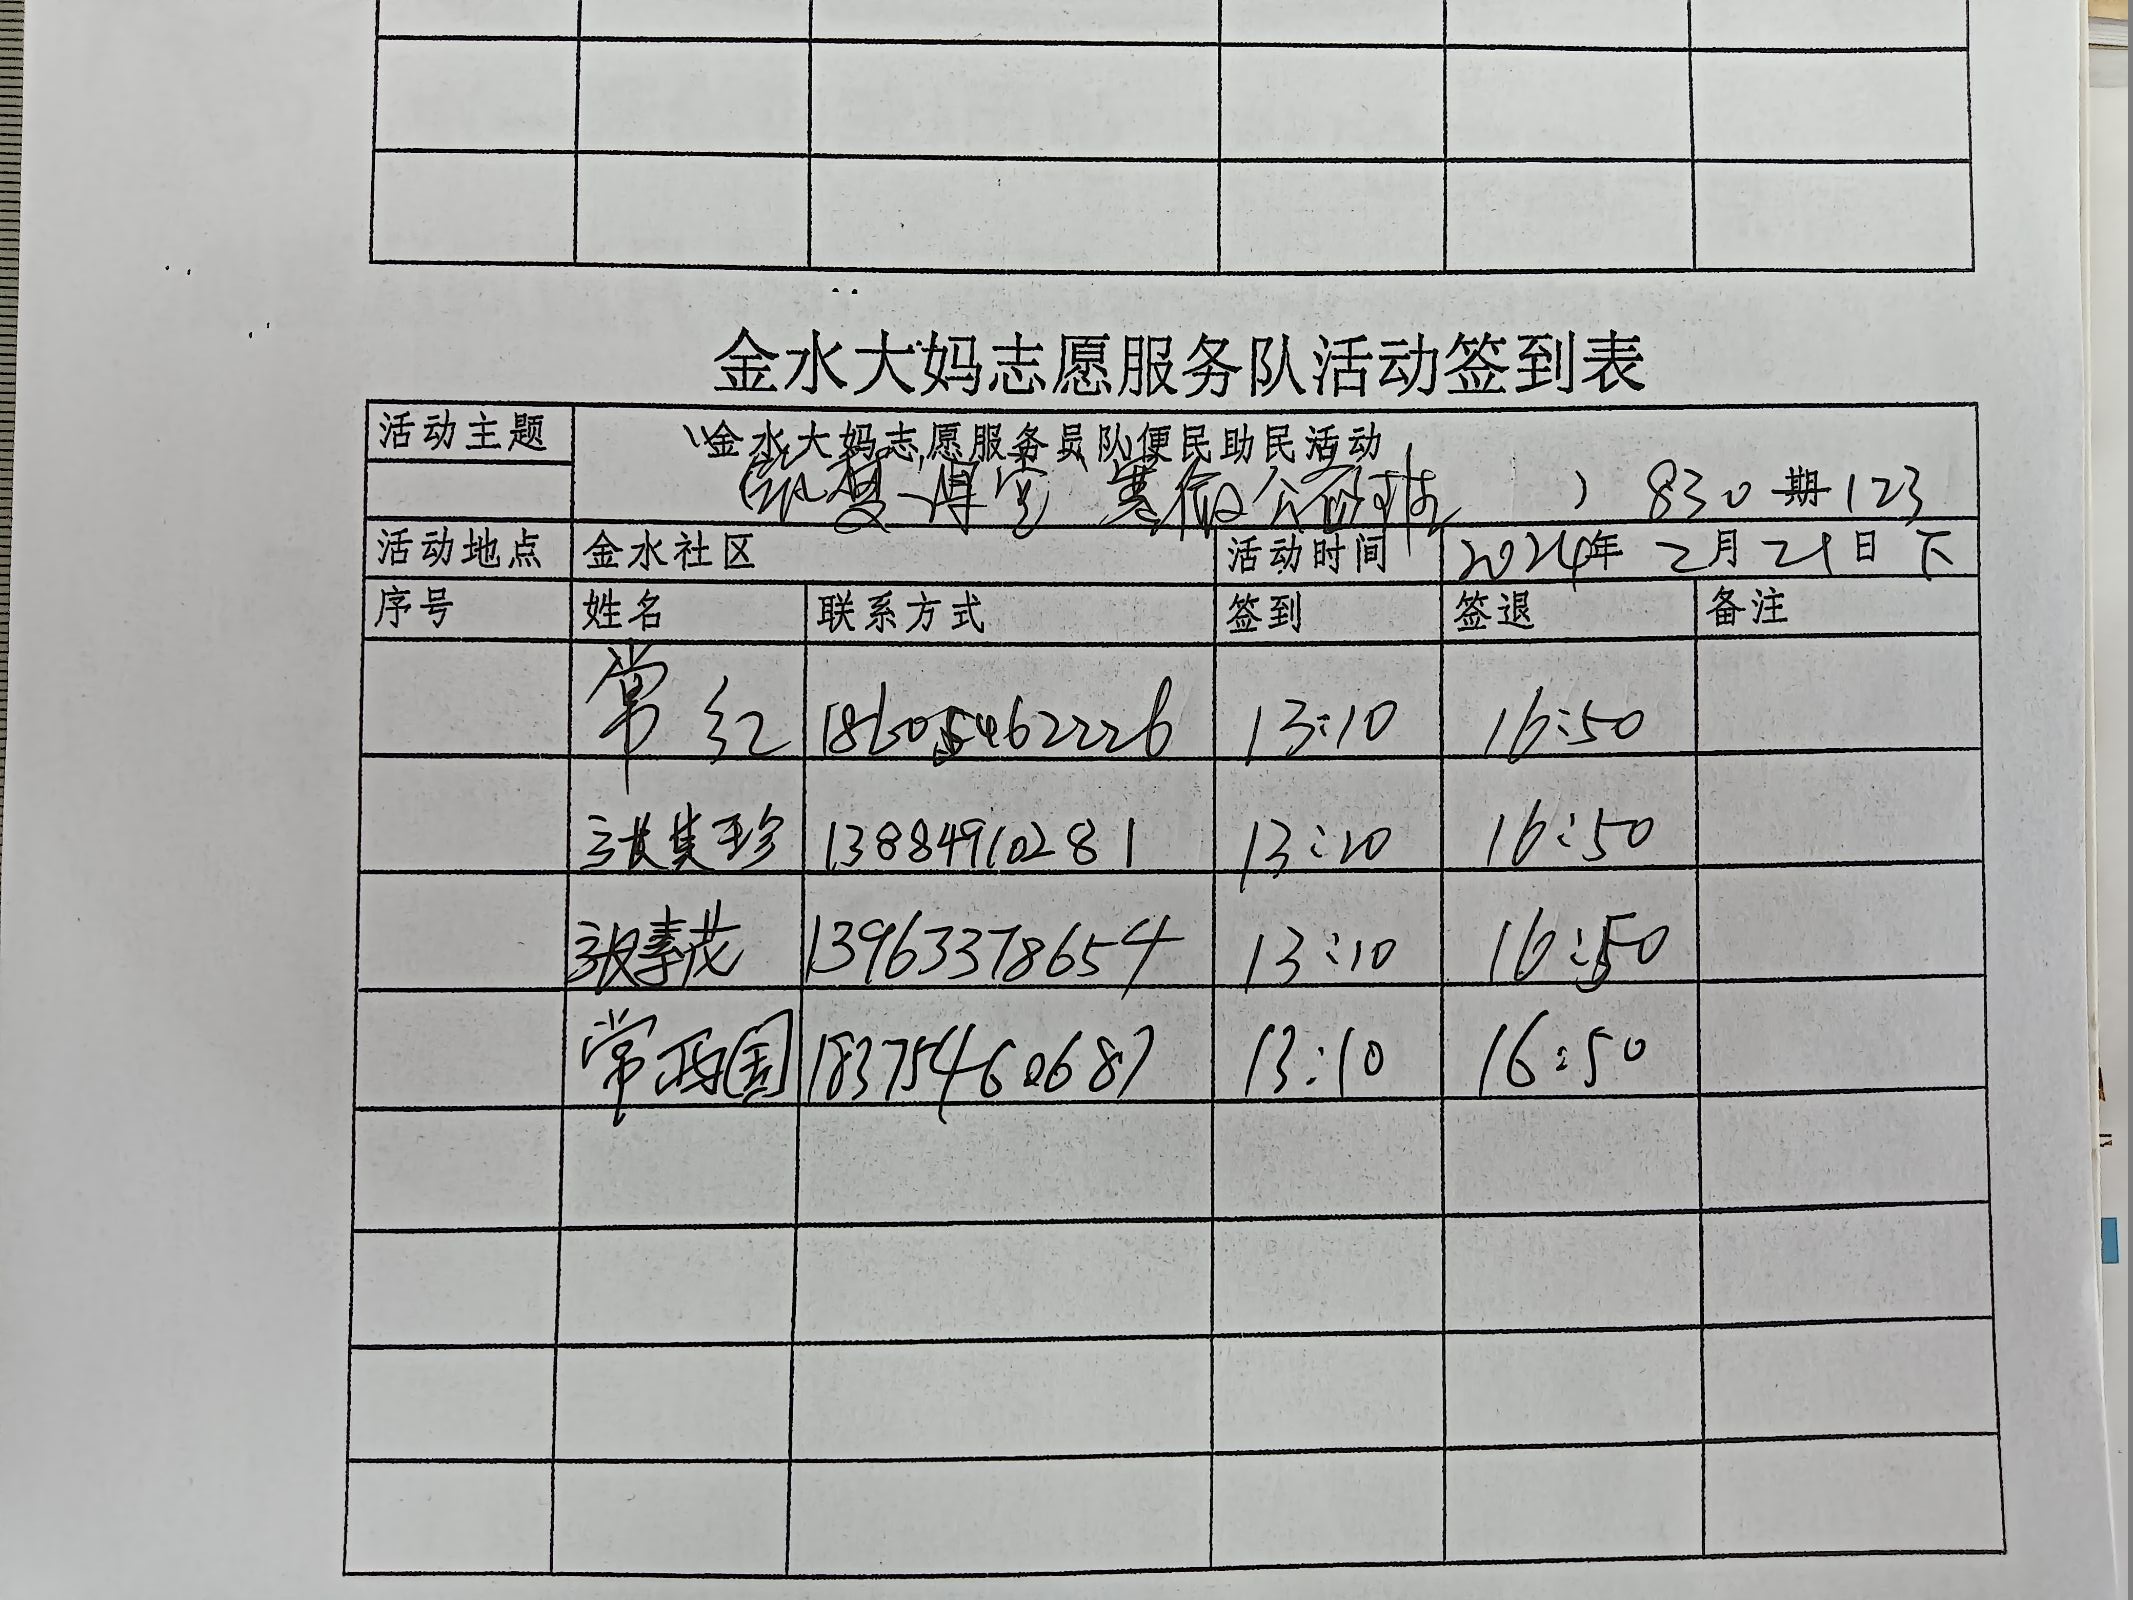 金水大妈志愿服务队活动签到表
活动主题
金水大妈志愿服务员队便民助民活动
寒假公益 ) 830期123
活动地点 金水社区 活动时间 2024年2月21日下
序号 姓名 联系方式 签到 签退 备注
常红 18605462226 13:10 16:50
13884910281 13:10 16:50
张春花 13963378654 13:10 16:50
常 18375460687 13:10 16:50